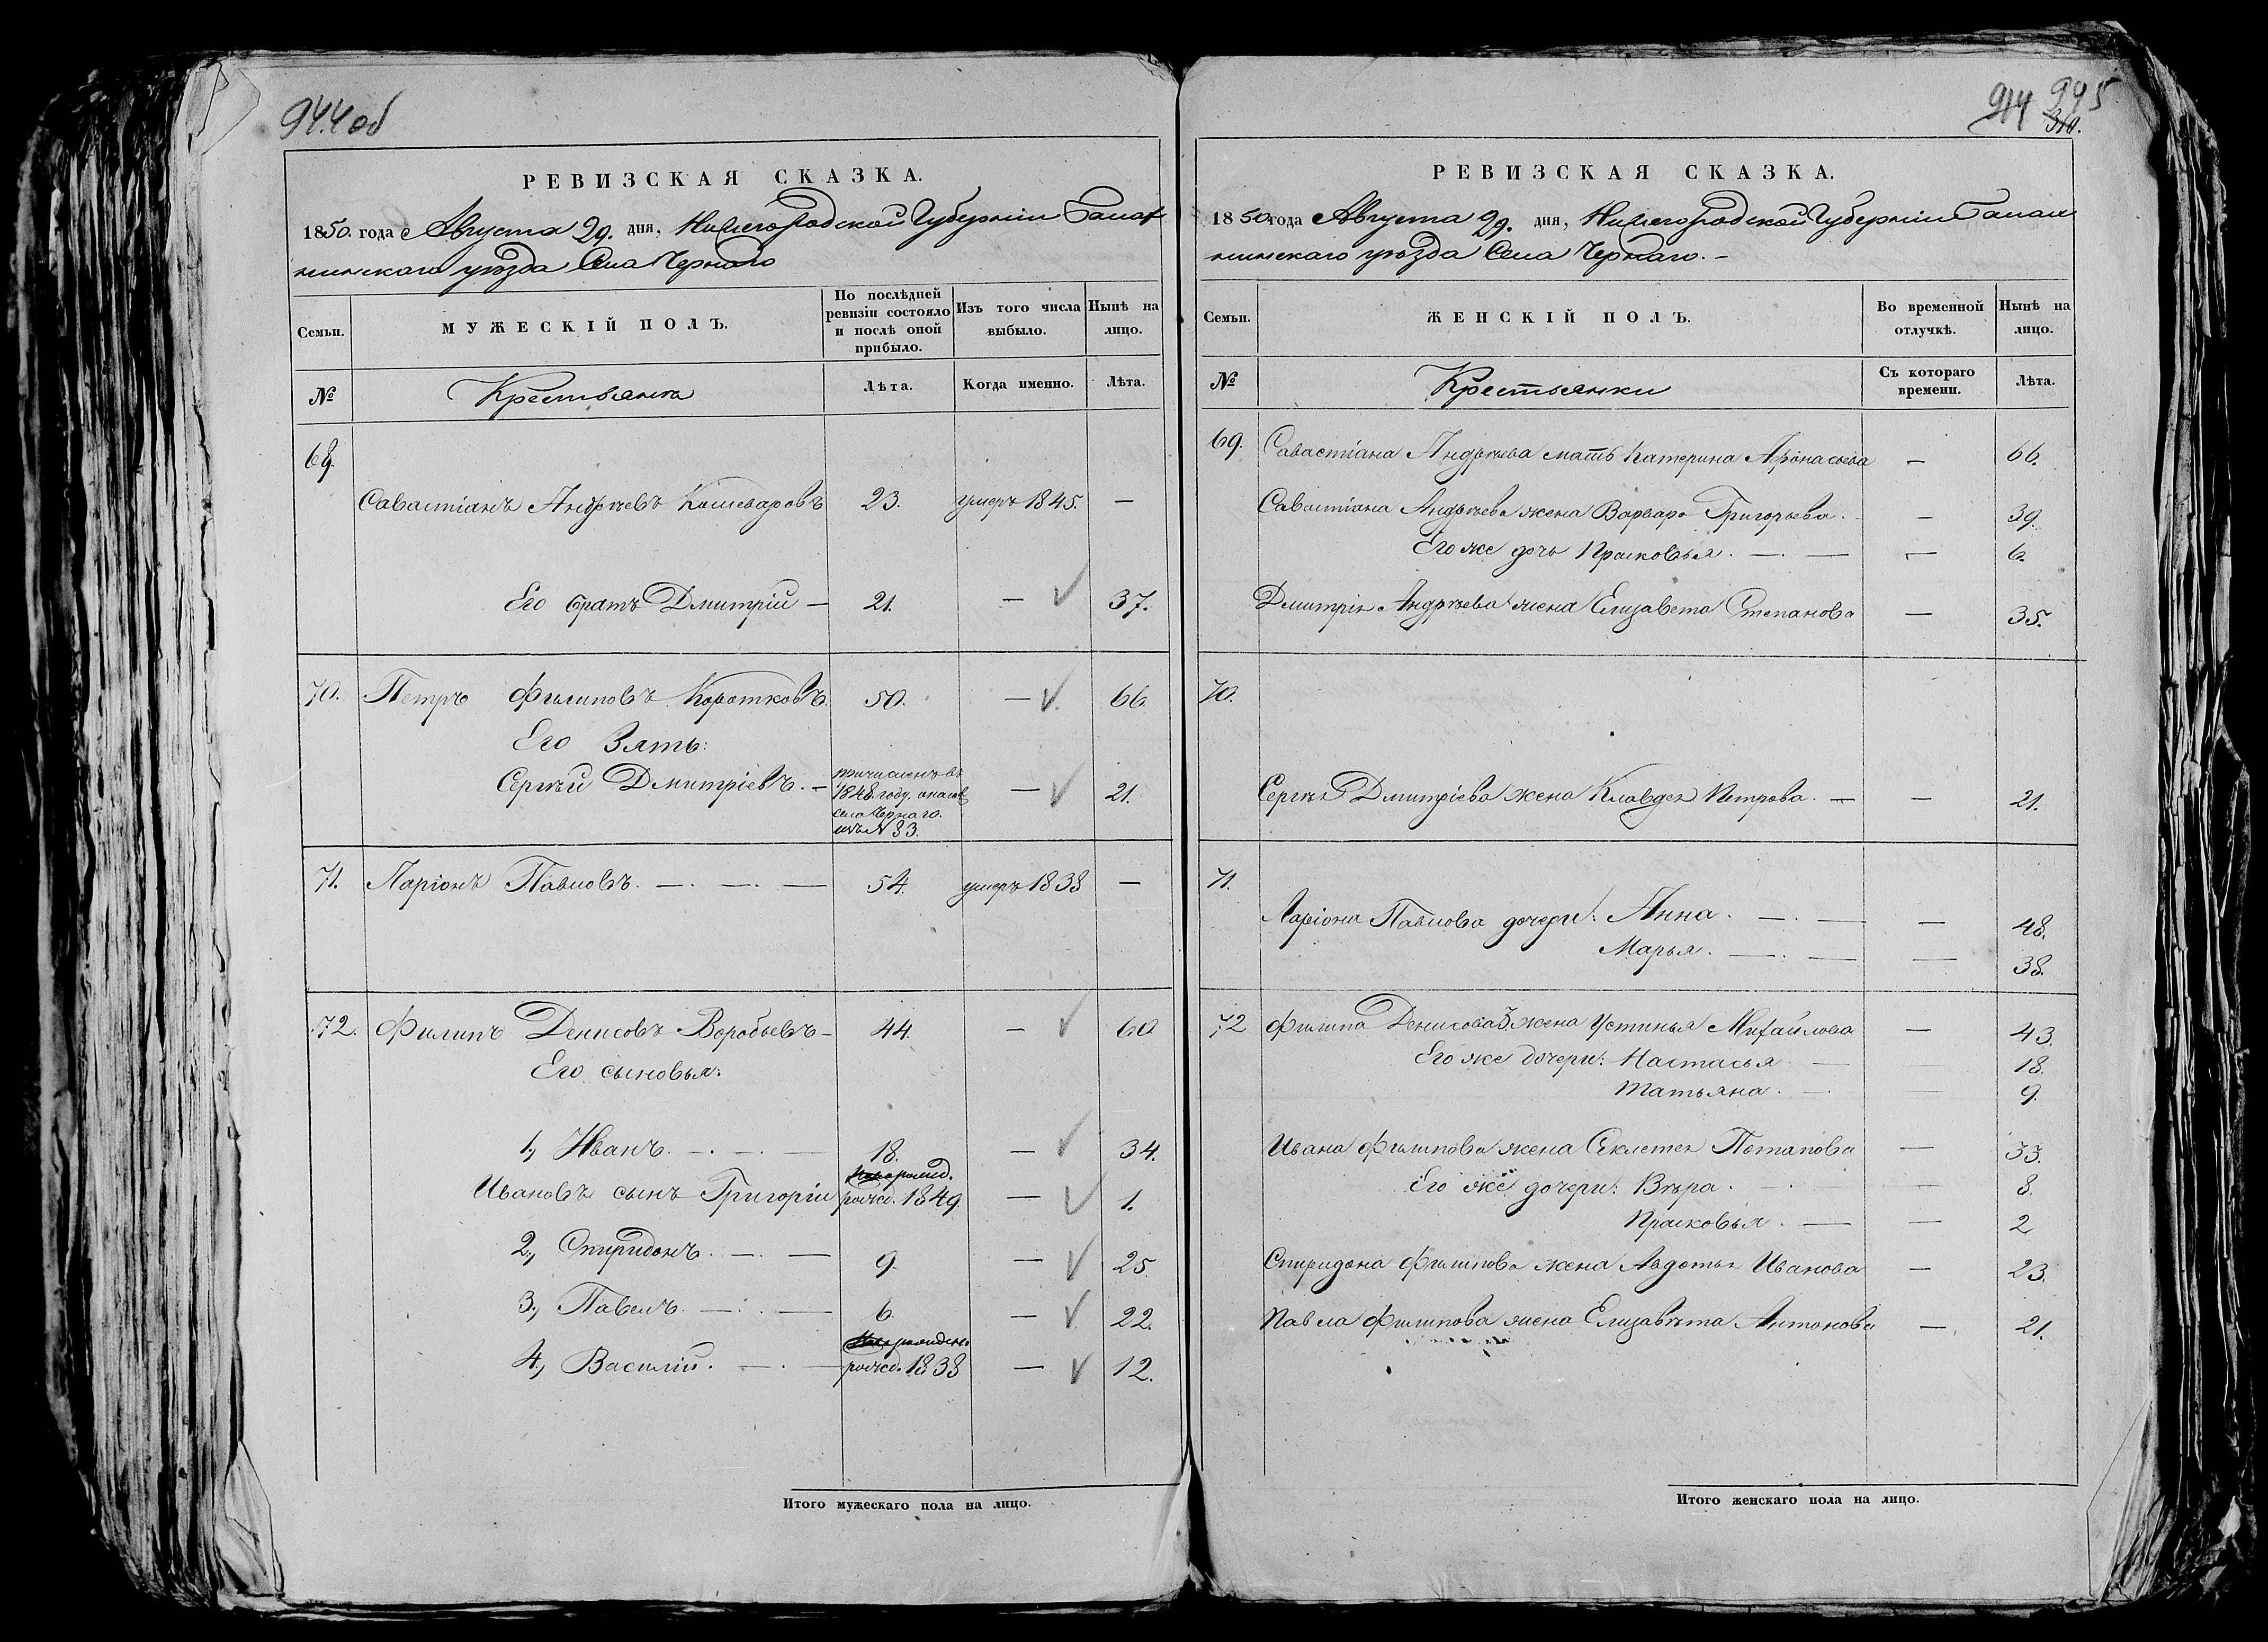 944 об
РЕВИЗСКАЯ СКАЗКА.
1850. года Августа 29. дня, Нижегородской Губерніи Балах
нинскаго уѣзда Села Чернаго
Семьи.
МУЖЕСКІЙ ПОЛЪ.
По послѣдней ревизіи состояло и послѣ оной прибыло.
Изъ того числа выбыло.
Нынѣ на лицо.
№
Крестьянъ
Лѣта.
Когда именно.
Лѣта.
69.
Савастіанъ Андрѣевъ Кашеваровъ 23. умеръ 1845. —
Его братъ Дмитрій — 21. — 37.
70. Петръ Филиповъ Коротковъ. 50. — 66.
Его Зять:
Сергѣй Дмитріевъ. — причисленъ въ — 21.
1848 году
села Чернаго.
изъ № 83.
71. Ларіонъ Павловъ. — . — . — 54. умеръ 1838 —
72. Филипъ Денисовъ Воробьевъ — 44. — 60
Его сыновья:
1, Иванъ. — . — . — 18. — 34.
Ивановъ сынъ Григорій рожд. 1849 — 1.
2, Спиридонъ. — . — 9. — 25.
3, Павелъ. — . — 6. — 22.
4, Василій. — . — рожд. 1838 — 12.
Итого мужескаго пола на лицо.
914 945
310.
РЕВИЗСКАЯ СКАЗКА.
1850 года Августа 29. дня, Нижегородской Губерніи Балах
нинскаго уѣзда Села Чернаго. —
Семьи.
ЖЕНСКІЙ ПОЛЪ.
Во временной отлучкѣ.
Нынѣ на лицо.
№
Крестьянки
Съ котораго времени.
Лѣта.
69. Савастіана Андрѣева мать Катерина Афонасьева — 66.
Савастіана Андрѣева жена Варвара Григорьева. — 39.
Его же дочь Прасковья. — . — — 6.
Дмитрія Андрѣева жена Елизавета Степанова — 35.
70.
Сергѣя Дмитріева жена Клавдея Петрова. — — 21.
71.
Ларіона Павлова дочери: Анна. — . — — 48.
Марья. — . — — 38.
72 Филипа Денисова жена Устинья Михайлова — 43.
Его же дочери: Настасья — — 18.
Татьяна. — — 9.
Ивана Филипова жена Секлетея Потапова — 33.
Его же дочери: Вѣра. — — 8.
Прасковья. — — 2
Спиридона Филипова жена Авдотья Иванова — 23.
Павла Филипова жена Елизавѣта Антонова — 21.
Итого женскаго пола на лицо.